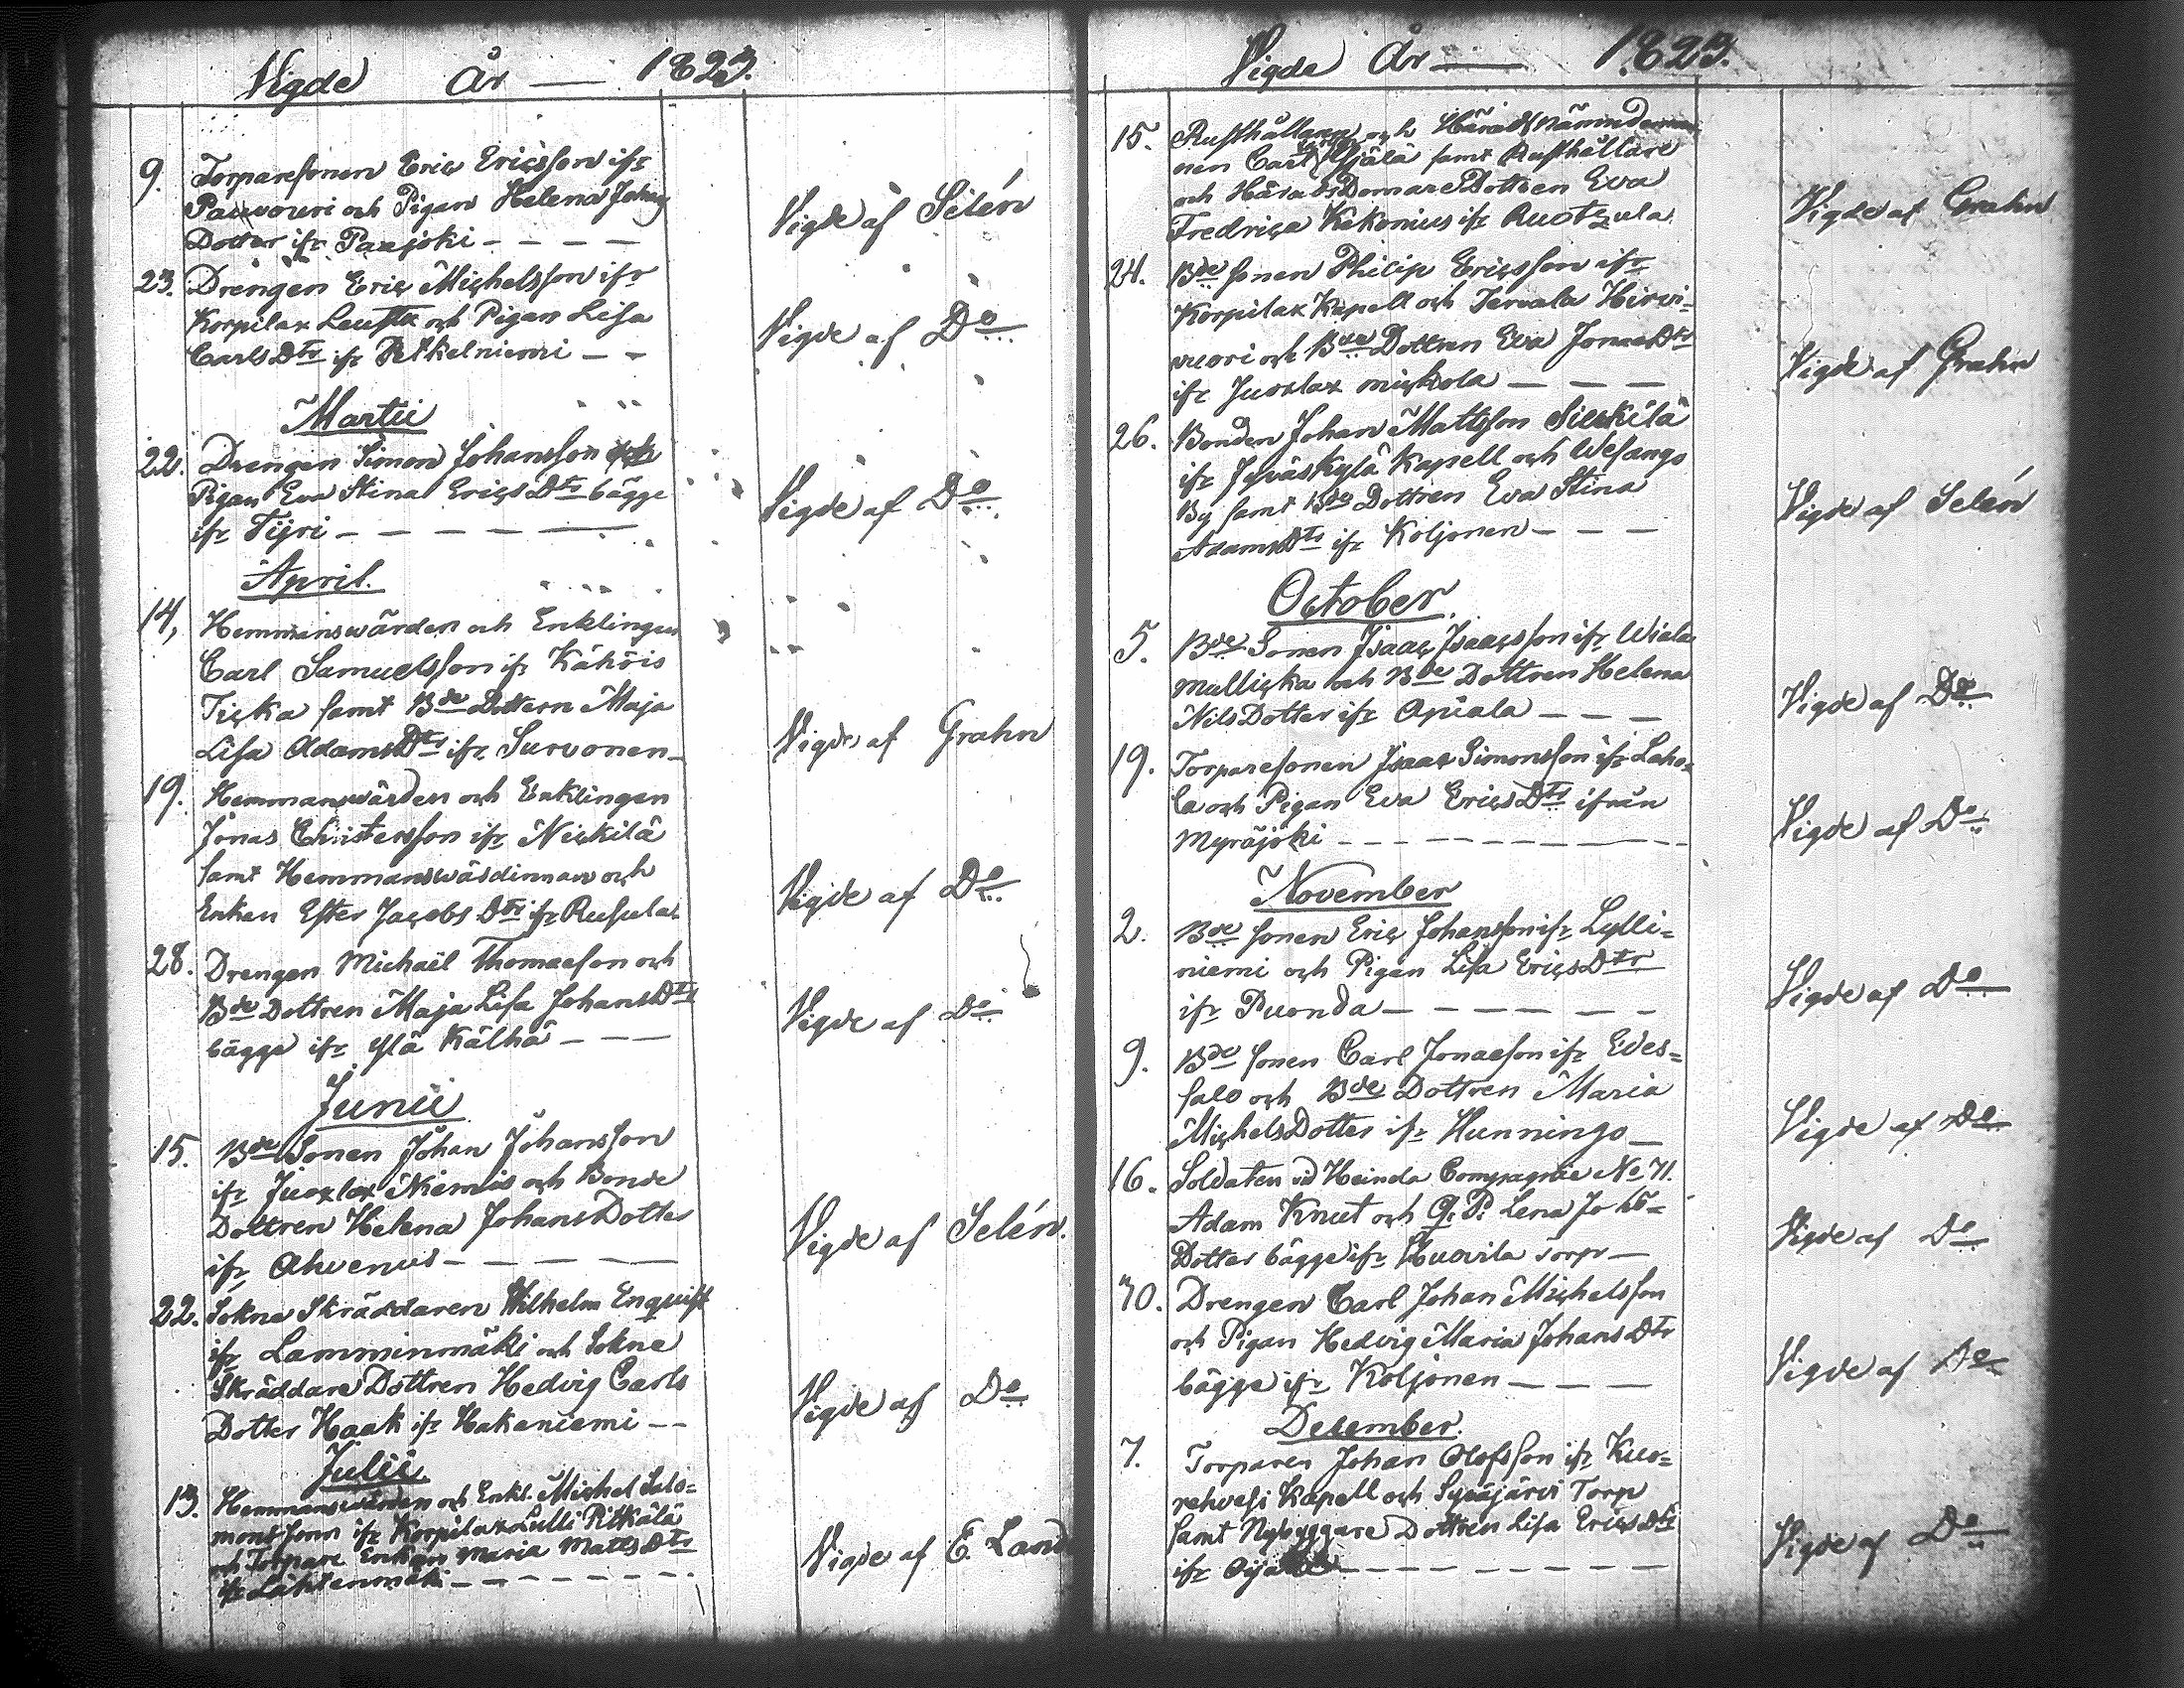 Vigde År — 1823.
9. Torparesonen Eric Ericsson ifr
Pauvouri och Pigan Helena Johans
Dotter ifr Paxjoki – – – –
Vigde af Selén
23. Drengen Eric Michelsson ifr
Korpilax Leustu och Pigan Lisa
Carls Dtr ifr Petkelniemi – –
Vigde af Do
Martii
22. Drengen Simon Johansson och
Pigan Eva Stina Erics Dtr bägge
ifr Tyri – – – –
Vigde af Do
April.
14, Hemmanswärden och Enklingen
Carl Samuelsson ifr Kähöis
Ticka samt Bde Dottern Maja
Lisa Adams Dtr ifr Survonen –
Vigde af Grahn
19. Hemmanswärden och Enklingen
Jonas Christersson ifr Nickilä
samt Hemmanswärdinnan och
Enkan Ester Jacobs Dtr ifr Rusula
Vigde af Do
28. Drengen Michaël Thomasson och
Bde Dottren Maja Lisa Johans Dtr
bägge ifr Ylä Kälhä – – –
Vigde af Do
Junii
15. Bde Sonen Johan Johansson
ifr Juoxlax Niemis och Bonde
Dottren Helena Johans Dotter
ifr Ahvenus – – – –
Vigde af Selén.
22. Sokne Skräddaren Wilhelm Enquist
ifr Lamminmäki och Sokne
Skräddare Dottren Hedvig Carls
Dotter Haak ifr Hakaniemi – –
Vigde af Do
Julii
13. Hemmanswärden och Enkl. Michel Salo=
monsson ifr Korpilax Lulli Pitkälä
och Torpare Enkan Maria Matts Dtr
ifr Lähtenmäki – – – –
Vigde af E. Land
Vigde År — 1823.
15. Rusthållaren och Häradsnämndeman
nen Carl Ojälä samt Rusthållare
och Härads Domare Dottren Eva
Fredrica Kekonius ifr Ruotzula
Vigde af Grahn
24. Bde Sonen Philip Ericsson ifr
Korpilax Kapell och Servala Hirvi=
vuori och Bde Dottren Eva Jonas Dtr
ifr Juoxlax mickola – – –
Vigde af Grahn
26. Bonden Johan Mattsson Sikskilä
ifr Jyväskylä Kapell och Wesango
By samt Bde Dottren Eva Stina
Adams Dtr ifr Koljonen – – –
Vigde af Selén
October.
5. Bde Sonen Isaac Isaacsson ifr Wiala
mullicka och Bde Dottren Helena
Nils Dotter ifr Apiala – – –
Vigde af Do
19. Torparesonen Isaac Simonsson ifr Laho=
la och Pigan Eva Erics Dtr ifrån
Myräjoki – – – –
Vigde af Do
November
2. Bde sonen Eric Johansson ifr Lylli=
niemi och Pigan Lisa Erics Dtr
ifr Puonda – – – –
Vigde af Do
9. Bde sonen Carl Jonasson ifr Edes=
salo och Bde Dottren Maria
Michels Dotter ifr Hunningo –
Vigde af Do
16. Soldaten vid Heinola Compagnie No 71.
Adam Knut och Q. P. Lena Johs=
Dotter bägge ifr Huovila torp –
Vigde af Do
30. Drengen Carl Johan Michelsson
och Pigan Hedvig Maria Johans Dtr
bägge ifr Koljonen – – –
Vigde af Do
December.
7. Torparen Johan Olofsson ifr Kuo=
rehvesi Kapell och Syväjärvi Torp
samt Nybyggare Dottren Lisa Erics Dtr
ifr – – – –
Vigde af Do